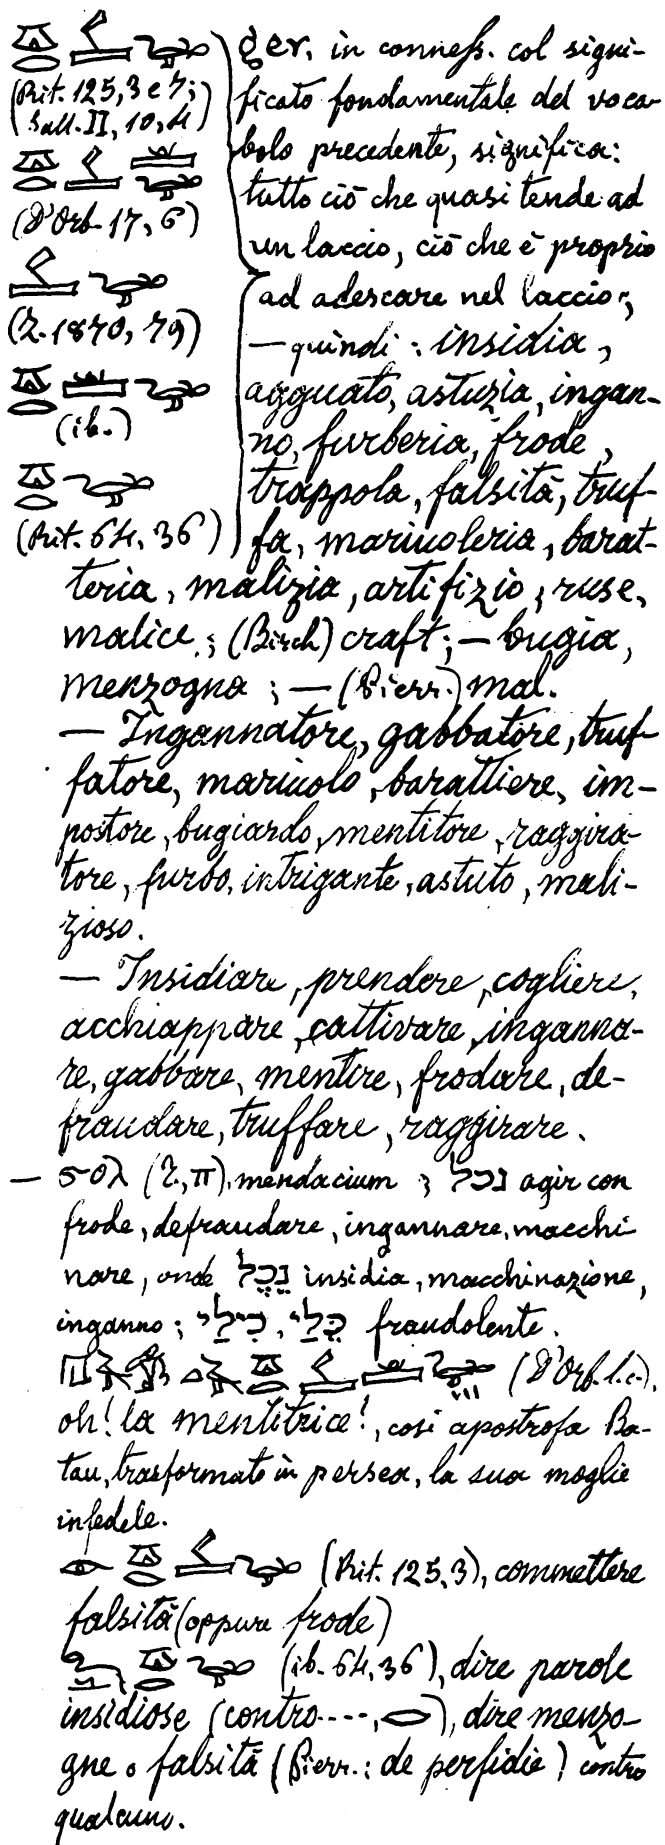 (Rit. 125, 3 e 7;
Sall. II, 10, 4)
(D'Orb. 17, 6)
(Z. 1870, 79)
(ib.)
(Rit. 64, 36)
ger, in conness. col signi-
ficato fondamentale del voca-
bolo precedente, significa:
tutto ciò che quasi tende ad
un laccio, ciò che è proprio
ad adescare nel laccio;
— quindi: insidia,
agguato, astuzia, ingan-
no, furberia, frode,
trappola, falsità, truf-
fa, mariuoleria, barat-
teria, malizia, artifizio; ruse,
malice; (Birch) craft; — bugia,
menzogna; — (Pierr.) mal.
— Ingannatore, gabbatore, truf-
fatore, mariuolo, barattiere, im-
postore, bugiardo, mentitore, raggira-
tore, furbo, intrigante, astuto, mali-
zioso.
— Insidiare, prendere, cogliere,
acchiappare, cattivare, inganna-
re, gabbare, mentire, frodare, de-
fraudare, truffare, raggirare.
— ϭⲟⲗ (Ⲍ, π), mendacium; נכל agir con
frode, defraudare, ingannare, macchi-
nare, onde נֵכֶל insidia, macchinazione,
inganno; כֵּלַי, כִּילַי fraudolente.
(D'Orb. l.c.),
oh! la mentitrice!, così apostrofa Ba-
tau, trasformato in persea, la sua moglie
infedele.
(Rit. 125, 3), commettere
falsità (oppure frode)
(ib. 64, 36), dire parole
insidiose (contro...., ), dire menzo-
gne o falsità (Pierr.: de perfidie) contro
qualcuno.